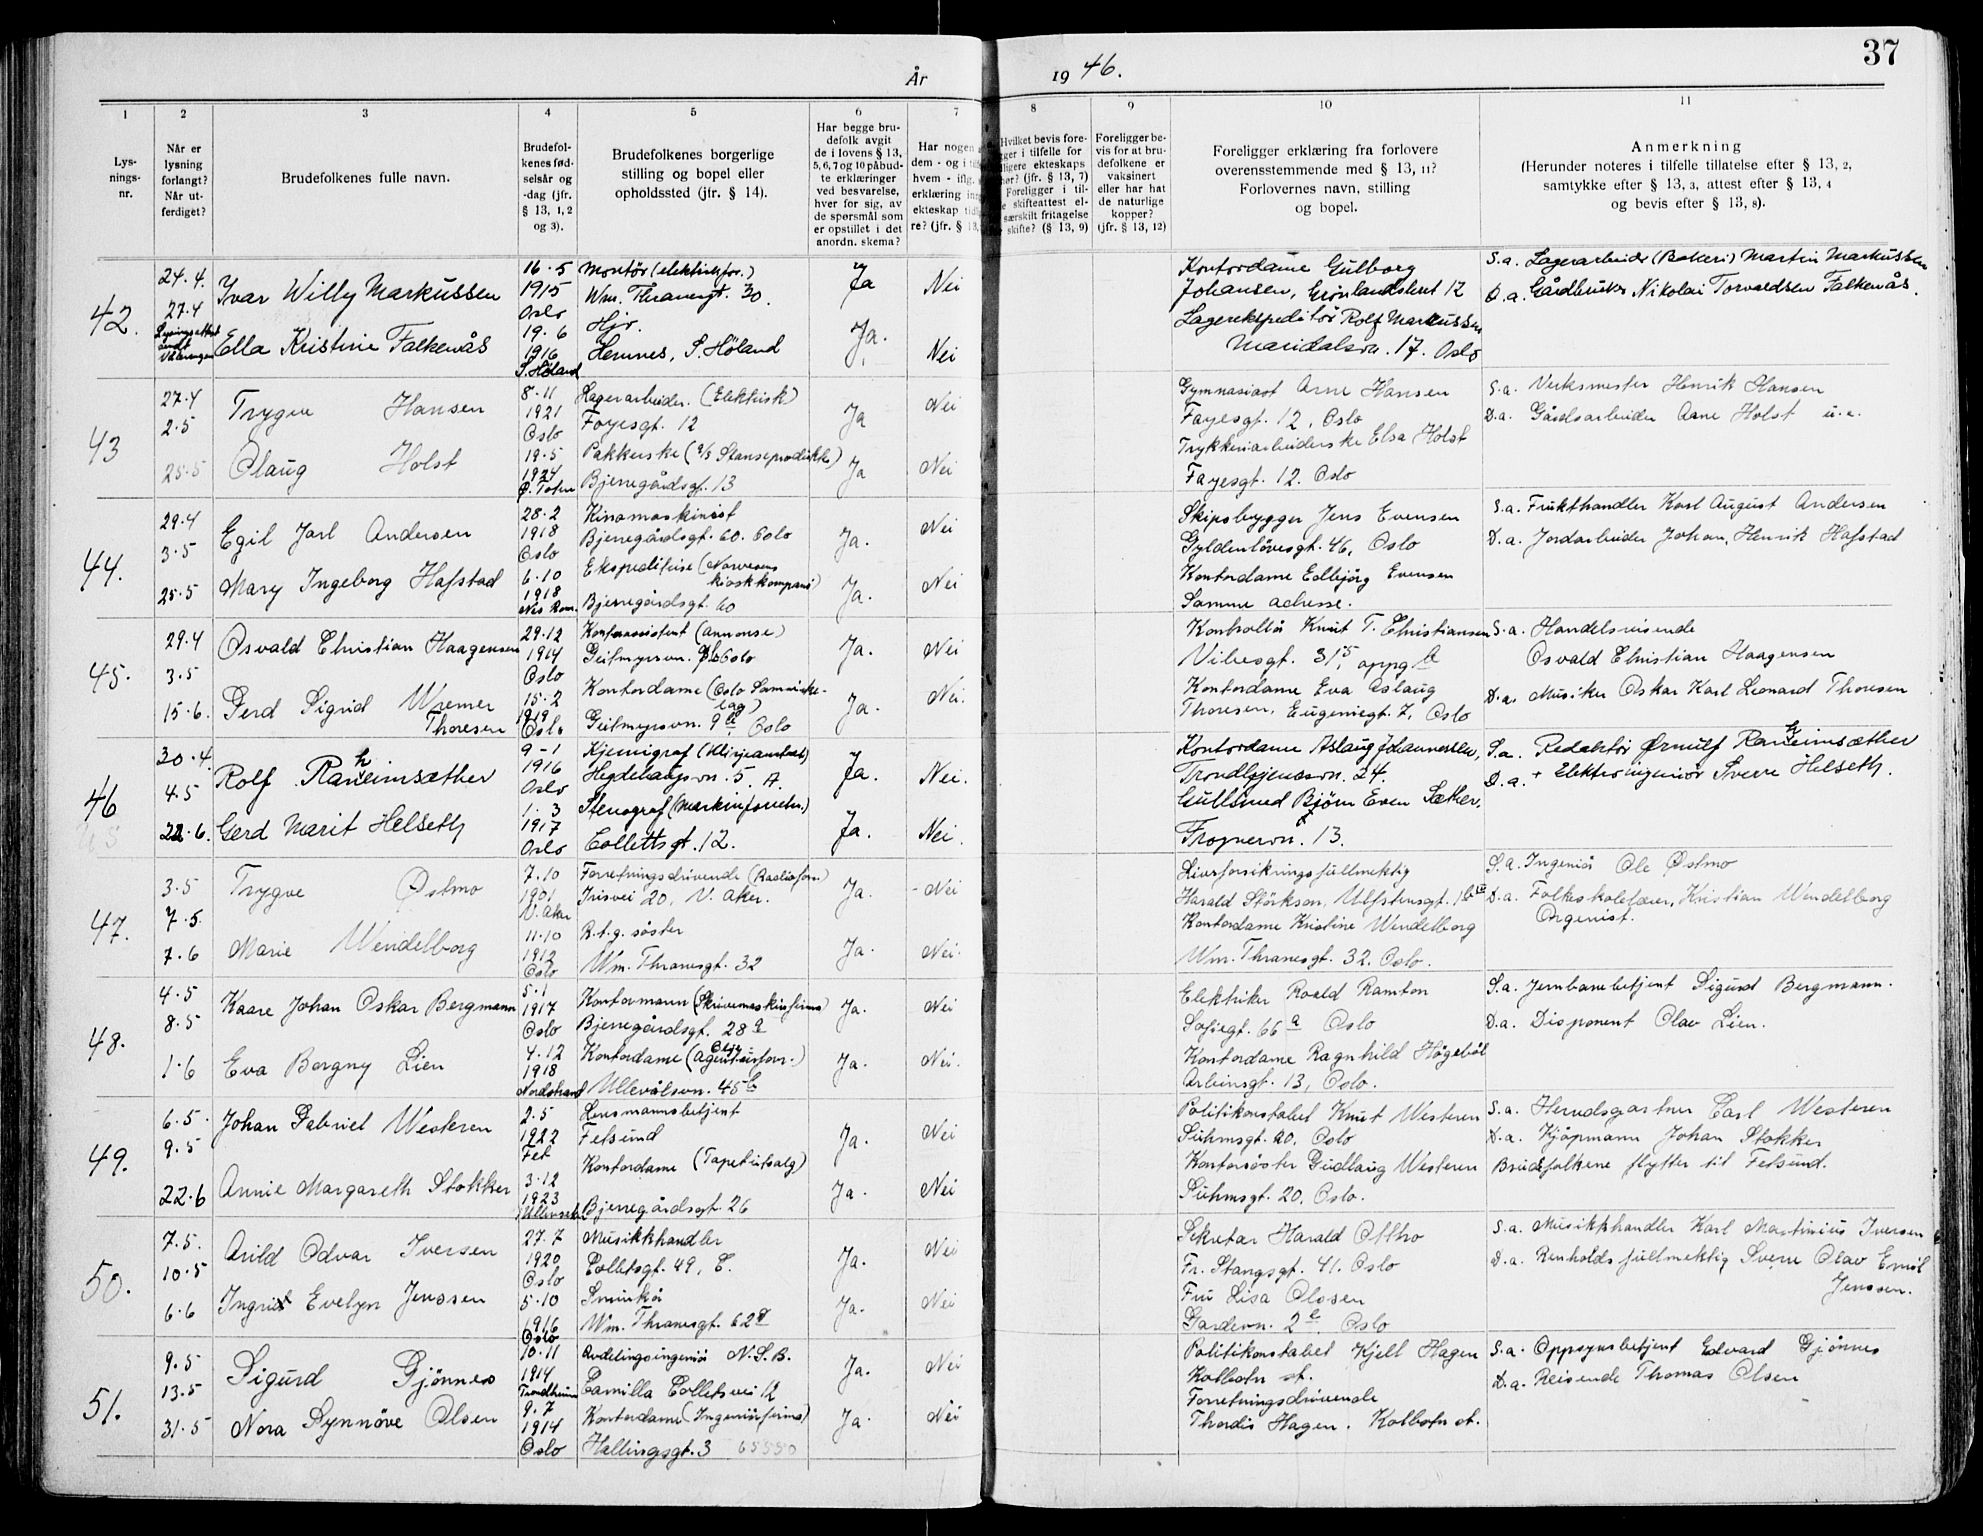 År 1946.
37
1 2 3 4 5 6 7 8 9 10 11
Lys-
nings-
nr.
Når er
lysning
forlangt?
Når ut-
ferdiget?
Brudefolkenes fulle navn.
Brudefol-
kenes fød-
selsår og
-dag (jfr.
§ 13, 1, 2
og 3).
Brudefolkenes borgerlige
stilling og bopel eller
opholdssted (jfr. § 14).
Har begge bru-
defolk avgit
de i lovens § 13,
5, 6, 7 og 10 påbud-
te erklæringer
ved besvarelse,
hver for sig, av
de spørsmål som
er opstillet i det
anordn. skema?
Har nogen
dem - og i
hvem - iflg.
erklæring
ekteskap
re? (jfr. § 13,
Hvilket bevis fore-
ger i tilfelle for
ligere ekteskaps
hør? (jfr. § 13, 7)
Foreligger i til-
e skifteattest el-
særskilt fritagelse
skifte? (§ 13, 9)
Foreligger be-
vis for at bru-
defolkene er
vaksinert
eller har hat
de naturlige
kopper?
(jfr. § 13, 12)
Foreligger erklæring fra forlovere
overensstemmende med § 13, 11?
Forlovernes navn, stilling
og bopel.
Anmerkning
(Herunder noteres i tilfelle tillatelse efter § 13, 2,
samtykke efter § 13, 3, attest efter § 13, 4
og bevis efter § 13, 8).
42.
24.4.
27.4
Ivar Willy Markussen
16.5
1915
Oslo
Montør (elektrisk for.)
Wm. Thranesgt. 30.
Ja
Nei
Ella Kristine Falkenås
19.6
1916
S. Høland
Hjv.
Hemnes, S. Høland
Ja.
Nei
Kontordame Gulborg
Johansen, Grønlandsleret 12
Lagerekspeditør Rolf Markussen
Maridalsvn. 17. Oslo
S.a. Lagerarbeider (Bakeri) Martin Markussen
D.a. Gårdbruker Nikolai Torvaldsen Falkenås.
43
27.4
2.5
25.5
Trygve Hansen
8-11
1921
Oslo
Lagerarbeider. (Elektrisk)
Fayesgt. 12
Ja
Nei
Olaug Holst
19.5
1924
Ø. Toten
Pakkerske (A/S Stanseprodukter)
Bjerregårdsgt. 13
Ja
Nei
Gymnasiast Arne Hansen
Fayesgt. 12, Oslo
Trykkeriarbeiderske Elsa Holst
Fayesgt. 12. Oslo
S.a. Verksmester Henrik Hansen
D.a. Gårdsarbeider Arne Holst u.e.
44.
29.4
3.5
25.5
Egil Jarl Andersen
28.2
1918
Oslo
Kinomaskinist
Bjerregårdsgt. 60. Oslo
Ja.
Nei
Mary Ingeborg Hafstad
6.10
1918
Nes Rom.
Ekspeditrise (Narvesens
kioskkompani)
Bjerregårdsgt. 60
Ja.
Nei
Skipsbygger Jens Evensen
Gyldenløvesgt. 46, Oslo
Kontordame Edbjørg Evensen
Samme adresse.
S.a. Frukthandler Karl August Andersen
D.a. Jordarbeider Johan Henrik Hafstad
45.
29.4
3.5
15.6.
Osvald Christian Haagensen
29.12
1914
Oslo
Kontorassistent (annonse)
Geitmyrsvn. Oslo
Ja.
Nei
Gerd Sigrid Werner
Thoresen
15.2
1919
Oslo
Kontordame (Oslo Samvirke-
lag)
Geitmyrsvn. 9 Oslo
Ja.
Nei.
Kontrollør Knut T. Christiansen
Vibesgt. 31, oppg.
Kontordame Eva Aslaug
Thoresen, Eugeniesgt. 7, Oslo
S.a. Handelsreisende
Osvald Christian Haagensen
D.a. Musiker Oskar Karl Leonard Thoresen
46
30.4.
4.5
22.6.
Rolf Ranheimsæther
9-1
1916
Oslo
Kjemigraf
Hegdehaugsvn. 5. A.
Ja.
Nei.
Gerd Marit Helseth
1.3
1917
Oslo
Stenograf (maskinforretn.)
Collettsgt. 12.
Ja.
Nei.
Kontordame Aslaug Johannessen,
Trondhjemsvn. 24.
Gullsmed Bjørn Even Sæther,
Frognervn. 13.
S.a. Redaktør Ørnulf Ranheimsæther
D.a. Elektroingeniør Sverre Helseth.
47.
3.5
7.5
7.6
Trygve Østmo
7.10
1901
V. Aker
Forretningsdrivende (Radioforr.)
Irisvei 20, V. Aker.
Ja.
- Nei
Marie Wendelborg
11.10
1912
Oslo
R.t.g. søster
Wm. Thranesgt. 32
Ja.
Nei.
Livsforsikringsfullmektig
Harald Störkson, Ulfstensgt. 1
Kontordame Kristine Wendelborg
Wm. Thranesgt. 32. Oslo.
S.a. Ingeniør Ole Østmo
D.a. Folkeskolelærer, Kristian Wendelborg
Organist.
48.
4.5
8.5
1.6
Kaare Johan Oskar Bergmann
5.1
1917
Oslo
Kontormann (Skrivemaskinfirma)
Bjerregårdsgt. 28 a
Ja.
Nei
Eva Borgny Lien
4.12
1918
Nordstrand
Kontordame (Agenturforr.)
Ullevålsvn. 45 b
Ja.
Nei.
Elektriker Roald Ramton
Sofiegt. 66 a Oslo
Kontordame Ragnhild Högebøl
Arbinsgt. 13, Oslo.
S.a. Jernbanebetjent Sigurd Bergmann.
D.a. Disponent Olav Lien.
49.
6.5.
9.5
22.6
Johan Gabriel Westeren
2.5
1922
Fet
Lensmannsbetjent
Fetsund
Ja.
Nei
Annie Margareth Stokker
3.12
1923
Ullensaker
Kontordame (Tapetutsalg)
Bjerregårdsgt 26
Ja.
Nei
Politikonstabel Knut Westeren
Suhmsgt. 20, Oslo
Kontorsöster Gudlaug Westeren
Suhmsgt. 20, Oslo.
S.a. Herredsgartner Carl Westeren
D.a. Kjøpmann Johan Stokker
Brudefolkene flytter til Fetsund.
50.
7.5.
10.5
6.6
Arild Odvar Iversen
27.7
1920
Oslo
Musikkhandler
Colletsgt. 49, E.
Ja.
Nei
Ingrid Evelyn Jenssen
5.10
1916
Oslo
Sminkør
Wm. Thranesgt. 62
Ja.
Nei
Sekretær Harald Ottho
Fr. Stangsgt. 41. Oslo
Fru Lisa Olssen
Gardevn. 2 Oslo
S.a. Musikkhandler Karl Martinius Iversen
D.a. Renholdsfullmektig Sverre Olav Emil
Jenssen.
51.
9.5
13.5
31.5
Sigurd Gjönnes
10.11
1914
Trondheim
Avdelingsingeniør N.S.B.
Camilla Colletsvei 12
Ja.
Nei
Nora Synnöve Olsen
9.7
1914
Oslo
Kontordame (Ingeniørfirma)
Hallingsgt. 3 65550
Ja.
Nei
Politikonstabel Kjell Hagen
Kolbotn st.
Forretningsdrivende
Thordis Hagen. Kolbotn st.
S.a. Oppsynsbetjent Edvard Gjönnes
D.a. Reisende Thomas Olsen